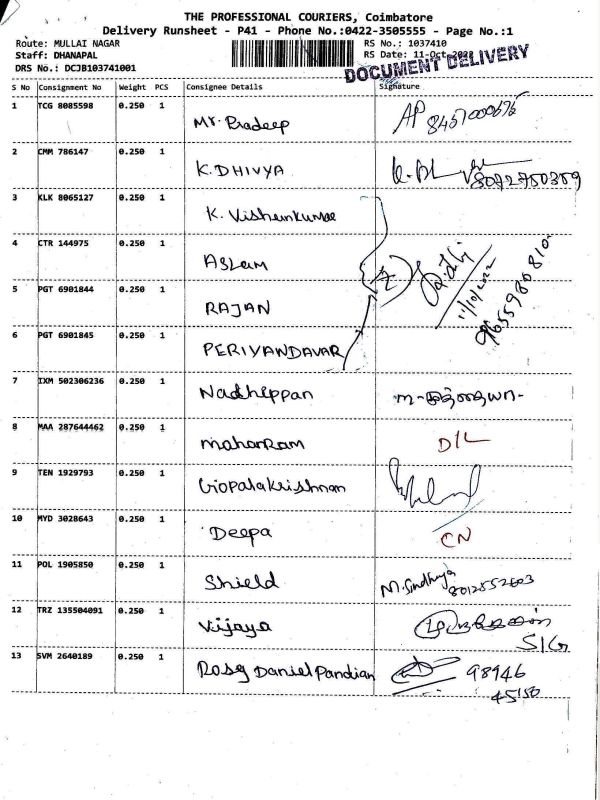 THE PROFESSIONAL COURIERS, Coimbatore
Delivery Runsheet - P41 - Phone No.:0422-3505555 - Page No.:1
Route: MULLAI NAGAR RS No.: 1037410
Staff: DHANAPAL RS Date: 11-Oct-2022
DRS No.: DCJB103741001
DOCUMENT DELIVERY
S No Consignment No Weight PCS Consignee Details Signature
1 TCG 8085598 0.250 1 Mr. Pradeep AP
2 CMM 786147 0.250 1 K.DHIVYA 8072750359
3 KLK 8065127 0.250 1 K. Vishnukumar
4 CTR 144975 0.250 1 ASLam
11/10/2022
9655980810
5 PGT 6901844 0.250 1 RAJAN
6 PGT 6901845 0.250 1 PERIYANDAVAR
7 IXM 502306236 0.250 1 Nadhippan
8 MAA 287644462 0.250 1 mahaRam D/L
9 TEN 1929793 0.250 1 Gopalakrishnan
10 MYD 3028643 0.250 1 Deepa CN
11 POL 1905850 0.250 1 Shield M.Sindhuja
8012552603
12 TRZ 135504091 0.250 1 Vijaya
S/G
13 SVM 2640189 0.250 1 Rosy Daniel Pandian 98946
45150